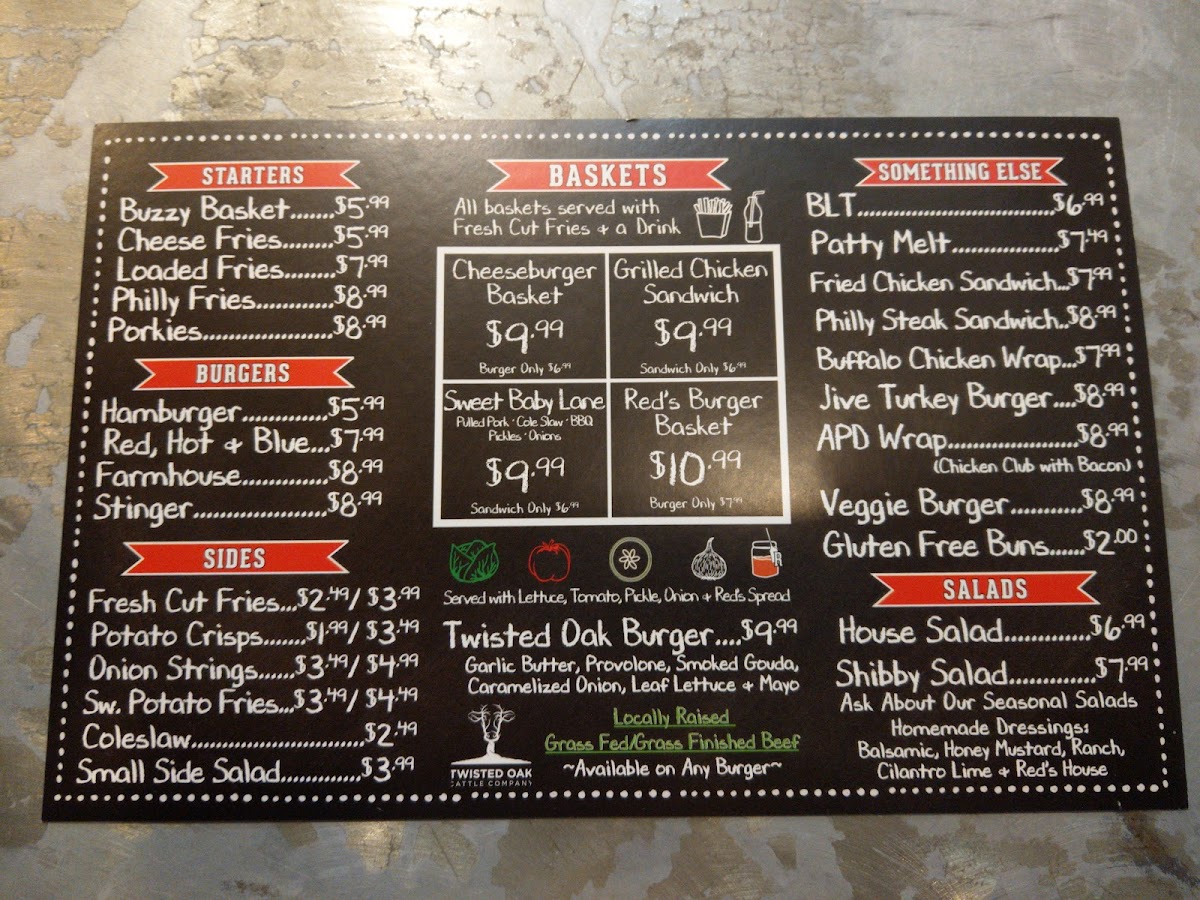 STARTERS
Buzzy Basket.......$5.99
Cheese Fries........$5.99
Loaded Fries........$7.99
Philly Fries............$8.99
Porkies....................$8.99
BURGERS
Hamburger.............$5.99
Red, Hot & Blue...$7.99
Farmhouse.............$8.99
Stinger....................$8.99
SIDES
Fresh Cut Fries...$2.49/ $3.99
Potato Crisps.......$1.99/ $3.49
Onion Strings......$3.49/ $4.99
Sw. Potato Fries...$3.49/ $4.49
Coleslaw..........................$2.49
Small Side Salad............$3.99
BASKETS
All baskets served with
Fresh Cut Fries & a Drink
Cheeseburger
Basket
$9.99
Burger Only $6.99
Grilled Chicken
Sandwich
$9.99
Sandwich Only $6.99
Sweet Baby Lane
Pulled Pork · Cole Slaw · BBQ
Pickles · Onions
$9.99
Sandwich Only $6.99
Red's Burger
Basket
$10.99
Burger Only $7.99
Served with Lettuce, Tomato, Pickle, Onion & Red's Spread
Twisted Oak Burger....$9.99
Garlic Butter, Provolone, Smoked Gouda,
Caramelized Onion, Leaf Lettuce & Mayo
TWISTED OAK
CATTLE COMPANY
Locally Raised
Grass Fed/Grass Finished Beef
~Available on Any Burger~
SOMETHING ELSE
BLT...............................$6.99
Patty Melt................$7.49
Fried Chicken Sandwich...$7.99
Philly Steak Sandwich..$8.99
Buffalo Chicken Wrap...$7.99
Jive Turkey Burger....$8.99
APD Wrap.....................$8.99
(Chicken Club with Bacon)
Veggie Burger...........$8.99
Gluten Free Buns......$2.00
SALADS
House Salad.............$6.99
Shibby Salad.............$7.99
Ask About Our Seasonal Salads
Homemade Dressings:
Balsamic, Honey Mustard, Ranch,
Cilantro Lime & Red's House